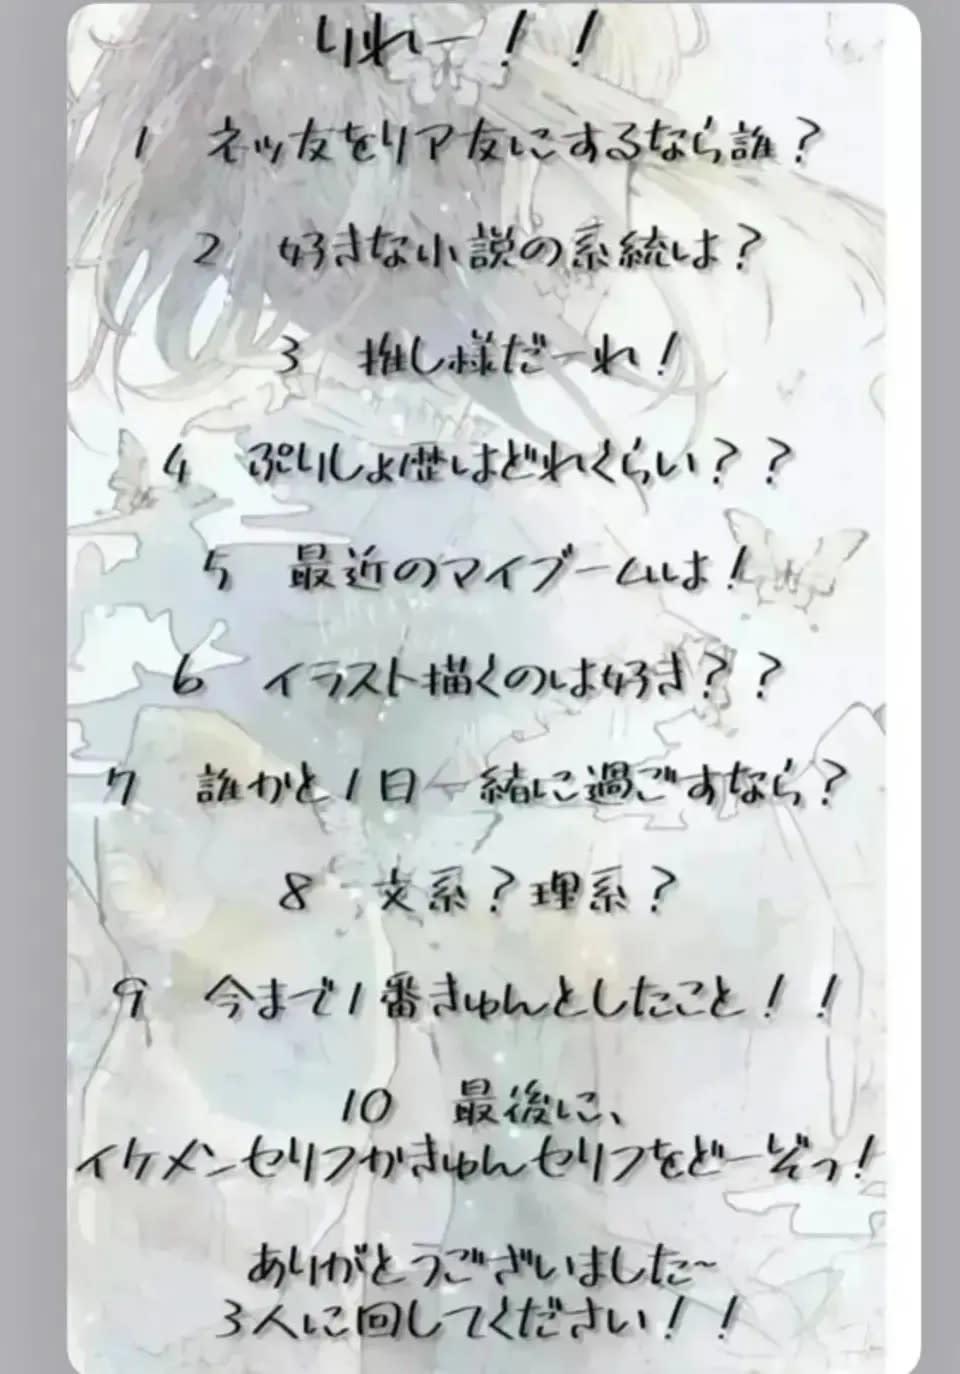 りれー！！
1　ネッ友をリア友にするなら誰？
2　好きな小説の系統は？
3　推し様だーれ！
4　ぷりしょ歴はどれくらい？？
5　最近のマイブームは！
6　イラスト描くのは好き？？
7　誰かと1日一緒に過ごすなら？
8　文系？理系？
9　今まで1番きゅんとしたこと！！
10　最後に、
イケメンセリフかきゅんセリフをどーぞっ！
ありがとうございました~
3人に回してください！！